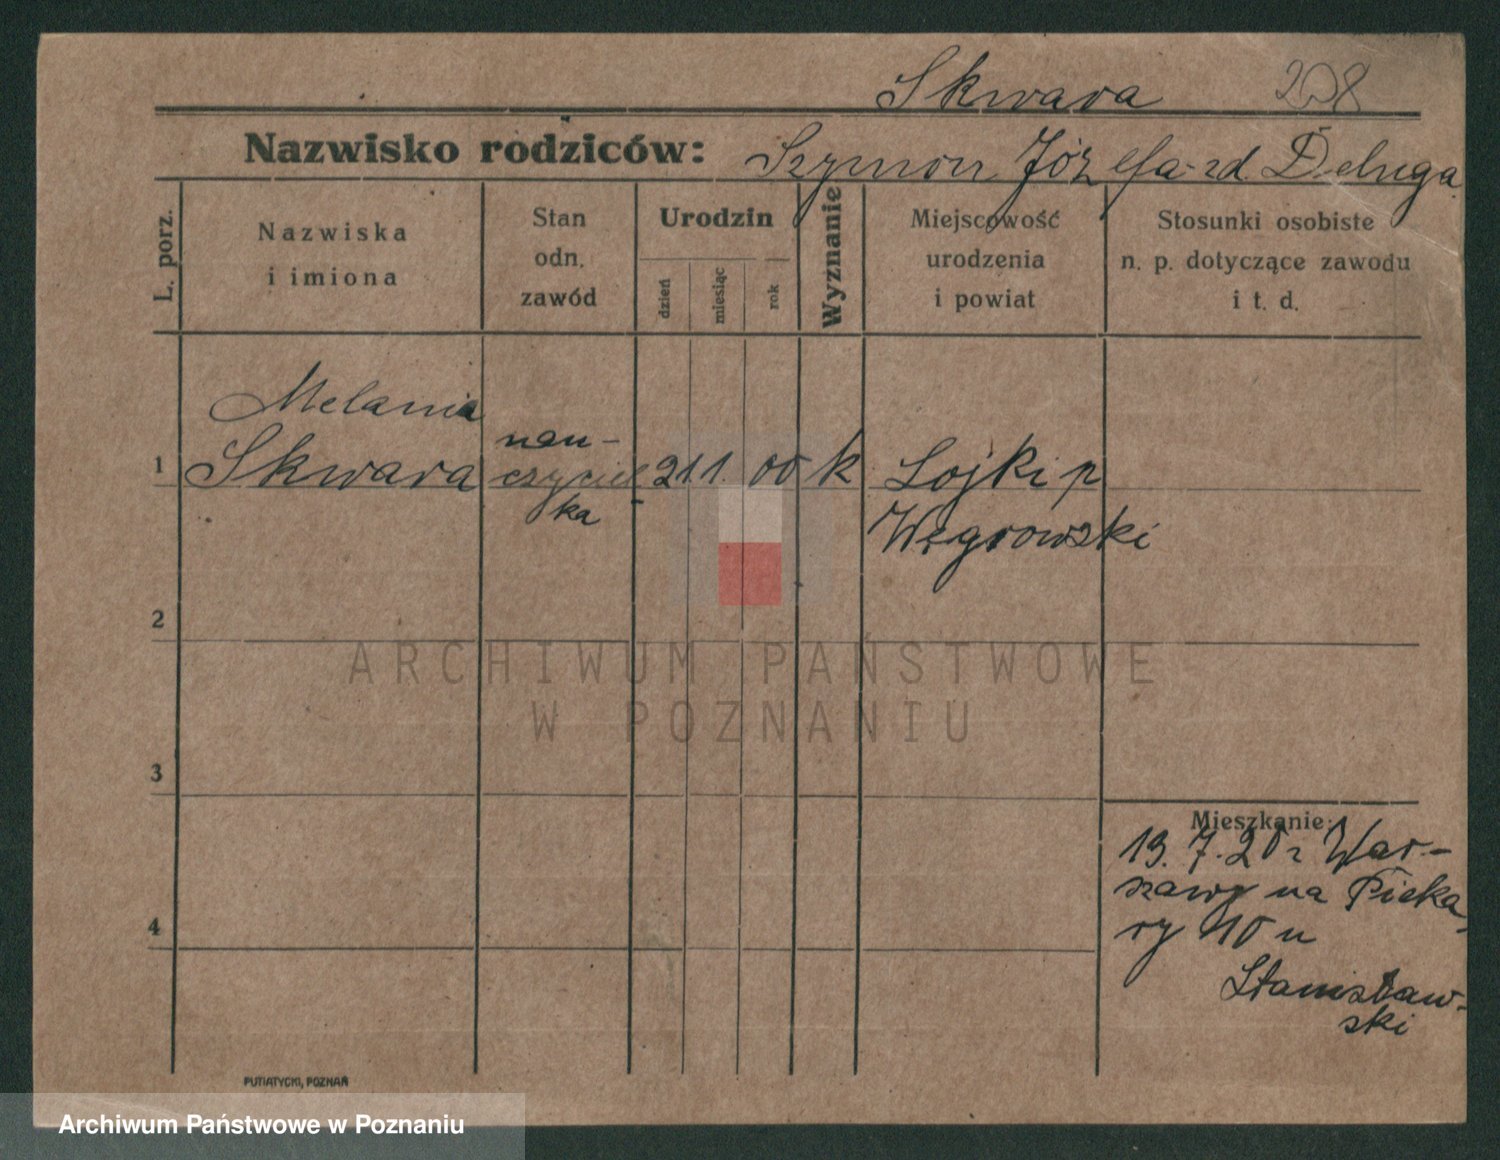 Skwara 208
Nazwisko rodziców: Szymon Józefa zd. Deluga
L. porz.
Nazwiska
i imiona
Stan
odn.
zawód
Urodzin
dzień
miesiąc
rok
Wyznanie
Miejscowość
urodzenia
i powiat
Stosunki osobiste
n. p. dotyczące zawodu
i t. d.
Melania
1 Skwara nau-
czyciel-
ka
21 1. 00 k Łojki p
Węgrowski
2
ARCHIWUM PAŃSTWOWE
W POZNANIU
3
Mieszkanie:
19. 7. 20 z War-
szawy na Pieka-
4 ry 10 u
Stanisław-
ski
PUTIATYCKI, POZNAŃ
Archiwum Państwowe w Poznaniu